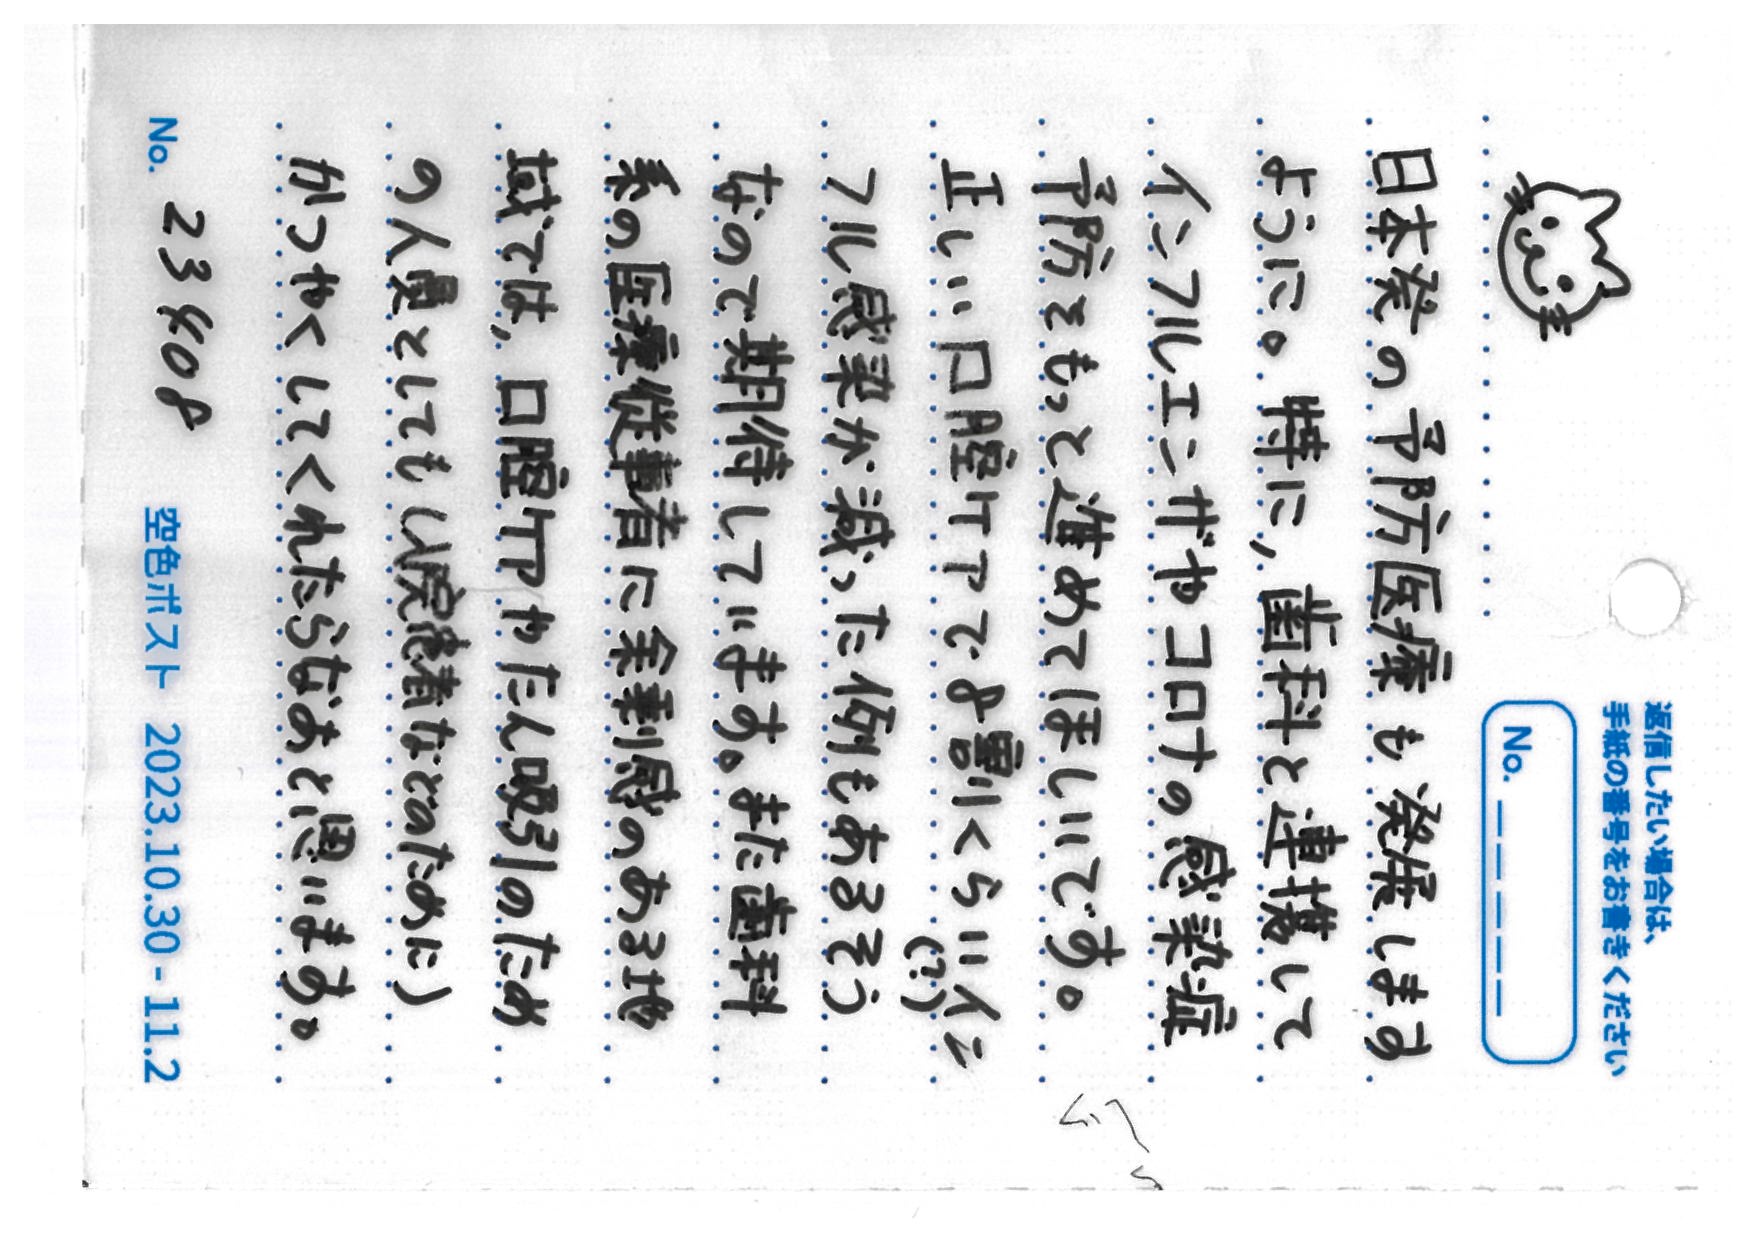 返信したい場合は、
手紙の番号をお書きください
No. _ _ _ _ _
日本発の予防医療も発展します
ように。特に,歯科と連携して
インフルエンザやコロナの感染症
予防をもっと進めてほしいです。
正しい口腔ケアで8割くらいイン
(?)
フル感染が減った例もあるそう
なので期待しています。また歯科
系の医療従事者に余剰感のある地
域では,口腔ケアやたん吸引のため
の人員としても(入院患者などのために)
かつやくしてくれたらなあと思います。
No. 23408
空色ポスト 2023.10.30 - 11.2